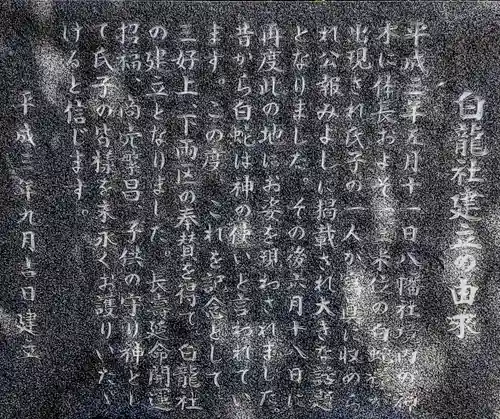 白龍社建立の由来
平成三年五月十一日八幡社境内の神
木に体長およそ 米位の白蛇
出現され氏子の一人が 真に収め
れ公報みよしに掲載され大きな話題
となりました。その後六月十八日に
再度此の地にお姿を現わされました。
昔から白蛇は神の使いと言われてい
ます。この度 これを記念として
三好上、下両区の奉賛を得て、白龍社
の建立となりました。長寿延命開運
招福、商売繁昌 子供の守り神とし
て氏子の皆様を末永くお護りいただ
けると信じます。
平成三年九月吉日建立